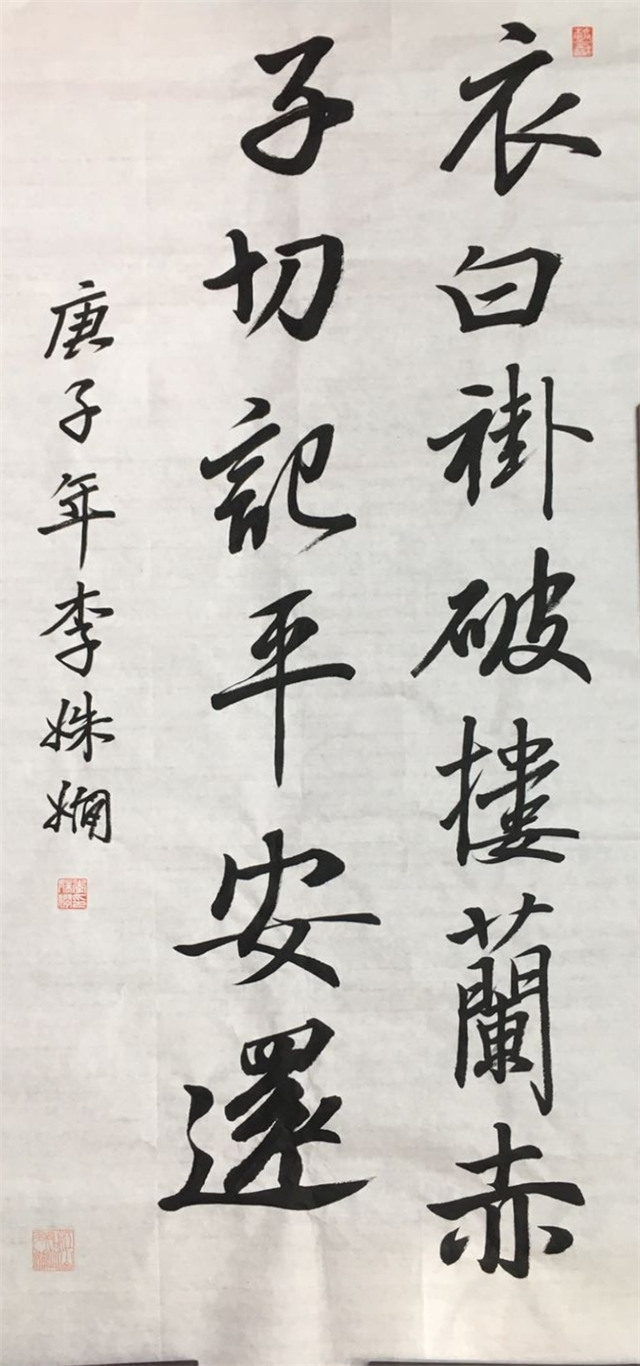 衣白褂破摟蘭赤
子切記平安還
庚子年李姝嫻